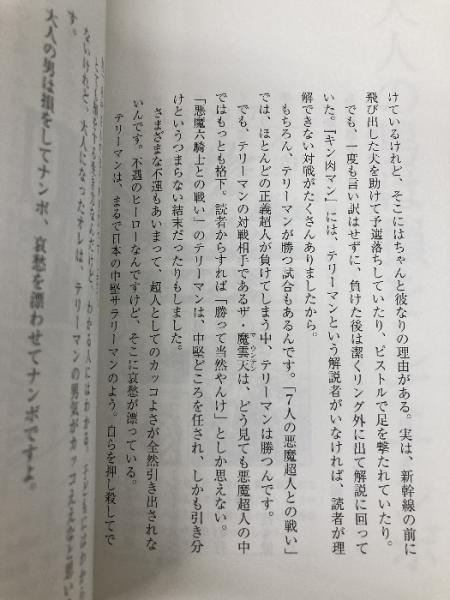 けているけれど、そこにはちゃんと彼なりの理由がある。実は、新幹線の前に
飛び出した犬を助けて予選落ちしていたり、ピストルで足を撃たれていたり。
でも、一度も言い訳はせずに、負けた後は潔くリング外に出て解説に回って
いた。『キン肉マン』には、テリーマンという解説者がいなければ、読者が理
解できない対戦がたくさんありましたから。
もちろん、テリーマンが勝つ試合もあるんです。「7人の悪魔超人との戦い」
では、ほとんどの正義超人が負けてしまう中、テリーマンは勝つんです。
でも、テリーマンの対戦相手であるザ・魔雲天は、どう見ても悪魔超人の中
ではもっとも格下。読者からすれば「勝って当然やんけ」としか思えない。
「悪魔六騎士との戦い」のテリーマンは、中堅どころを任され、しかも引き分
けというつまらない結末だったりもしました。
さまざまな不運もあいまって、超人としてのカッコよさが全然引き出されな
いんです。不遇のヒーローなんですけど、そこに哀愁が漂っている。
テリーマンは、まるで日本の中堅サラリーマンのよう。自らを押し殺してで
ないけれど、大人になったオレは、テリーマンの男気がカッコええなと思い
す。
大人の男は損をしてナンボ、哀愁を漂わせてナンボですよ。